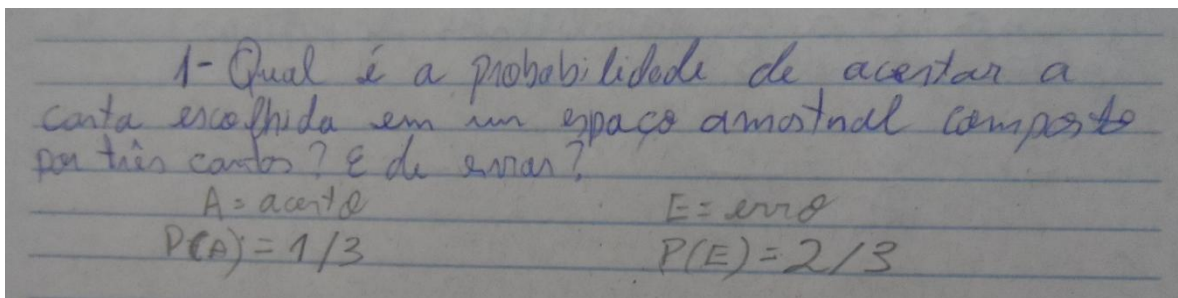 1- Qual é a probabilidade de acertar a
carta escolhida em um espaço amostral composto
por três cartas? E de errar?
A = acerto E = erro
P(A) = 1/3 P(E) = 2/3